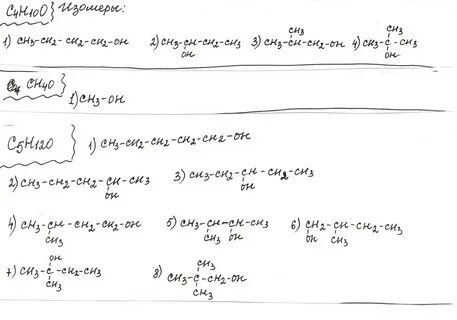 C4H10O} Изомеры:
1) CH3-CH2-CH2-CH2-OH 2) CH3-CH-CH2-CH3 3) CH3-CH-CH2-OH 4) CH3-C-CH3
OH CH3 CH3 OH
CH4O}
1) CH3-OH
C5H12O} 1) CH3-CH2-CH2-CH2-CH2-OH
2) CH3-CH2-CH2-CH-CH3 3) CH3-CH2-CH-CH2-CH3
OH OH
4) CH3-CH-CH2-CH2-OH 5) CH3-CH-CH-CH3 6) CH2-CH-CH2-CH3
CH3 CH3 OH OH CH3
OH CH3
7) CH3-C-CH2-CH3 8) CH3-C-CH2-OH
CH3 CH3